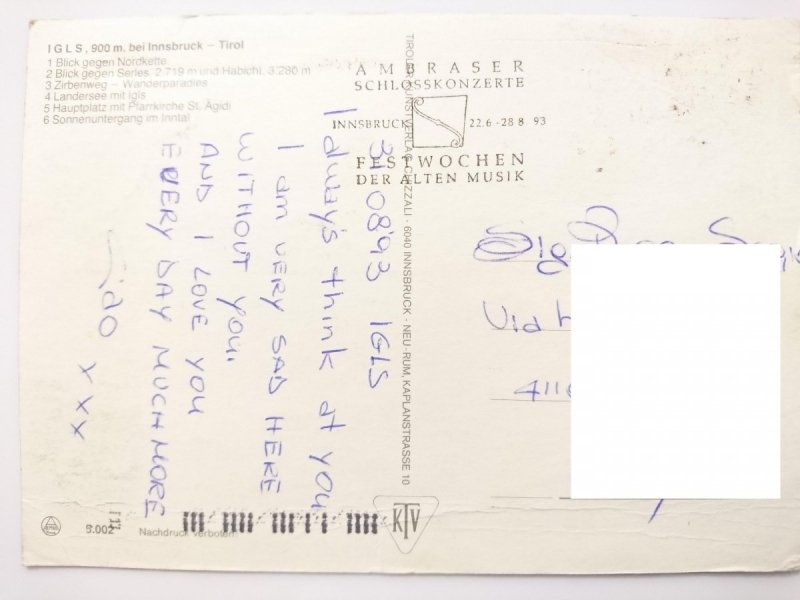 IGLS, 900 m. bei Innsbruck – Tirol
1 Blick gegen Nordkette
2 Blick gegen Serles, 2.719 m und Habicht, 3.280 m
3 Zirbenweg – Wanderparadies
4 Landersee mit Igls
5 Hauptplatz mit Pfarrkirche St. Ägidi
6 Sonnenuntergang im Inntal
AMBRASER
SCHLOSSKONZERTE
INNSBRUCK 22.6 -28 8 93
FESTWOCHEN
DER ALTEN MUSIK
31 08'93 IGLS
I always think at you
I am VERY SAD HERE
WITHOUT YOU.
AND I LOVE YOU
EVERY DAY MUCH MORE
xxx
TIROLER KUNSTVERLAG CHIZZALI · 6040 INNSBRUCK - NEU-RUM, KAPLANSTRASSE 10
Via
411
5.002
Nachdruck verboten!
KTV